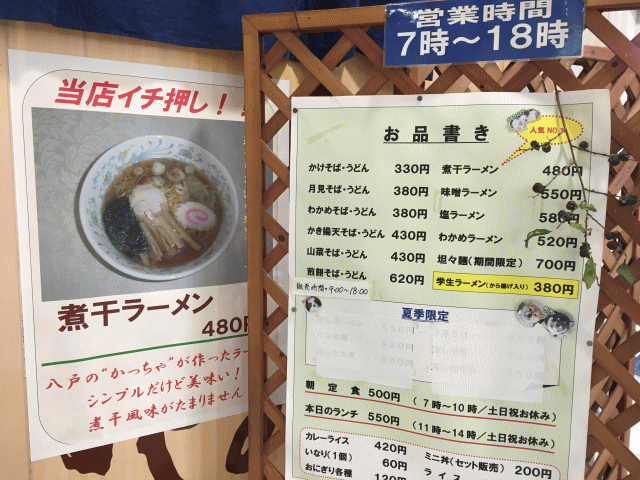 営業時間
7時～18時
当店イチ押し！！
煮干ラーメン
480円
八戸の"かっちゃ"が作ったラー
シンプルだけど美味い！
煮干風味がたまりません
お品書き
人気NO.1
かけそば・うどん 330円
月見そば・うどん 380円
わかめそば・うどん 380円
かき揚天そば・うどん 430円
山菜そば・うどん 430円
煎餅そば・うどん 620円
煮干ラーメン 480円
味噌ラーメン 550円
塩ラーメン
わかめラーメン 520円
坦々麺（期間限定） 700円
学生ラーメン（から揚げ入り） 380円
販売時間・9:00～18:00
夏季限定
朝定食 500円 （7時～10時／土日祝お休み）
本日のランチ 550円 （11時～14時／土日祝お休み）
カレーライス 420円
いなり（1個） 60円
おにぎり各種 120円
ミニ丼（セット販売） 200円
ライス